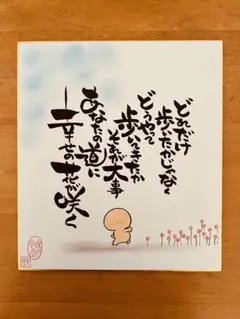 どれだけ
歩いたかじゃなく
どうやって
歩いてきたか
それが大事
あなたの道に
幸せの花が咲く